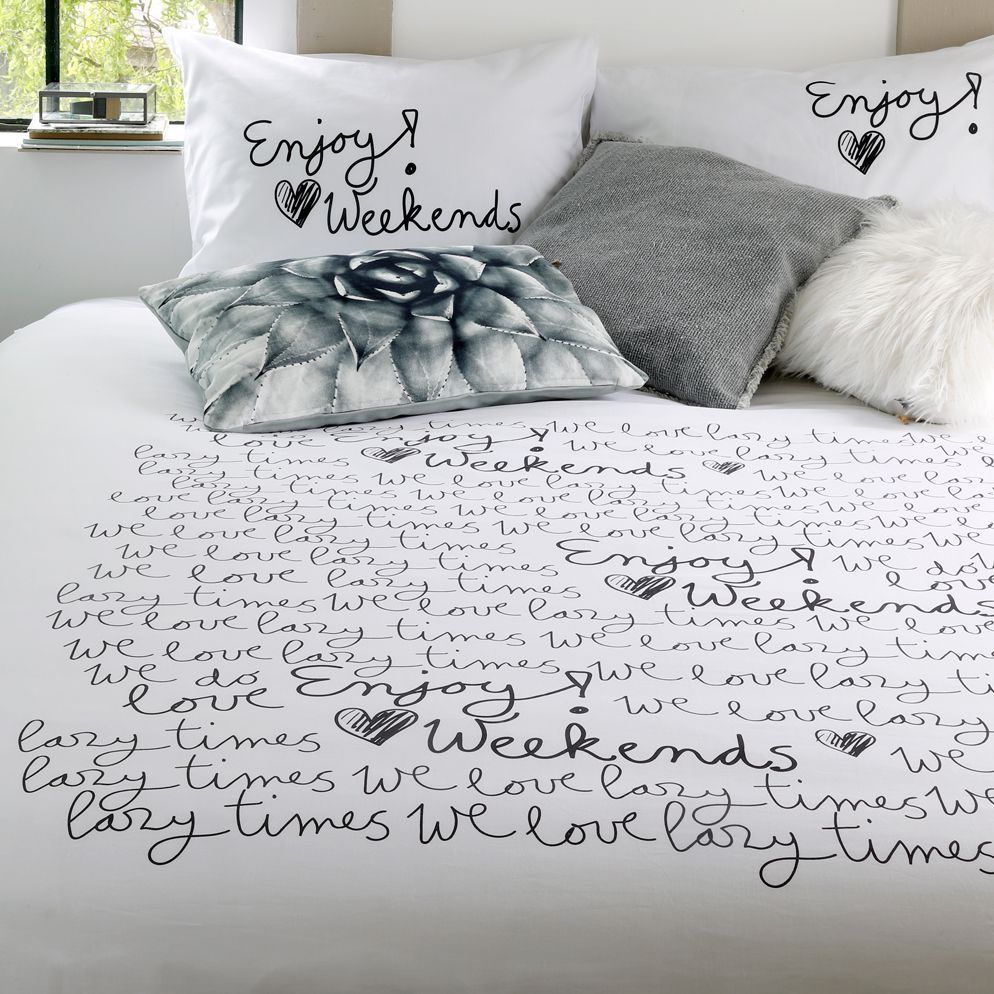 Enjoy!
Weekends
Enjoy!
we love lazy times we
love Enjoy! we love lazy
lazy times Weekends we love
lazy times we love lazy times we love
love lazy times we love lazy times we love
love lazy times we love lazy times we love
we love lazy times we love lazy times we
we love lazy times Enjoy! we do
we love lazy times Weekends love
lazy times we love lazy times we love
we love lazy times we love lazy times
we love lazy times we love lazy
we do Enjoy! we love lazy
love Weekends we
lazy times
lazy times we love lazy times we
lazy times we love lazy times